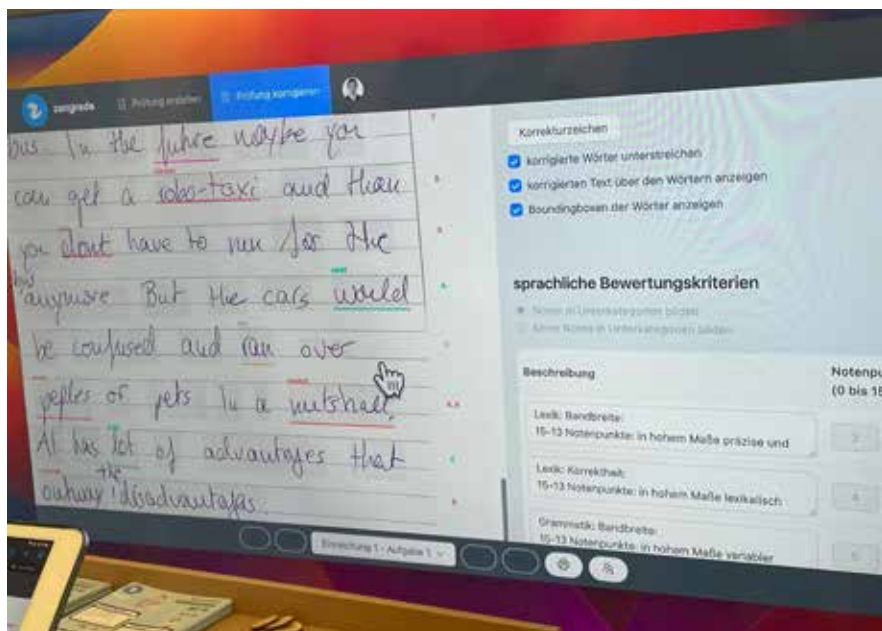 zangrade Prüfung erstellen Prüfung korrigieren
bus. In the fuhre maybe you
can get a robo-taxi and than
you dont have to run for the
bus
anymore But the cars would
be confused and ran over
peples or pets In a nutshall,
AI has lot of advantages that
the
outway disadvantages.
Einreichung 1 - Aufgabe 1
Korrekturzeichen
korrigierte Wörter unterstreichen
korrigierten Text über den Wörtern anzeigen
Boundingboxen der Wörter anzeigen
sprachliche Bewertungskriterien
Noten in Unterkategorien bilden
keine Noten in Unterkategorien bilden
Beschreibung Notenpu
(0 bis 15
Lexik: Bandbreite:
15-13 Notenpunkte: in hohem Maße präzise und
Lexik: Korrektheit:
15-13 Notenpunkte: in hohem Maße lexikalisch
Grammatik: Bandbreite:
15-13 Notenpunkte: in hohem Maße variabler